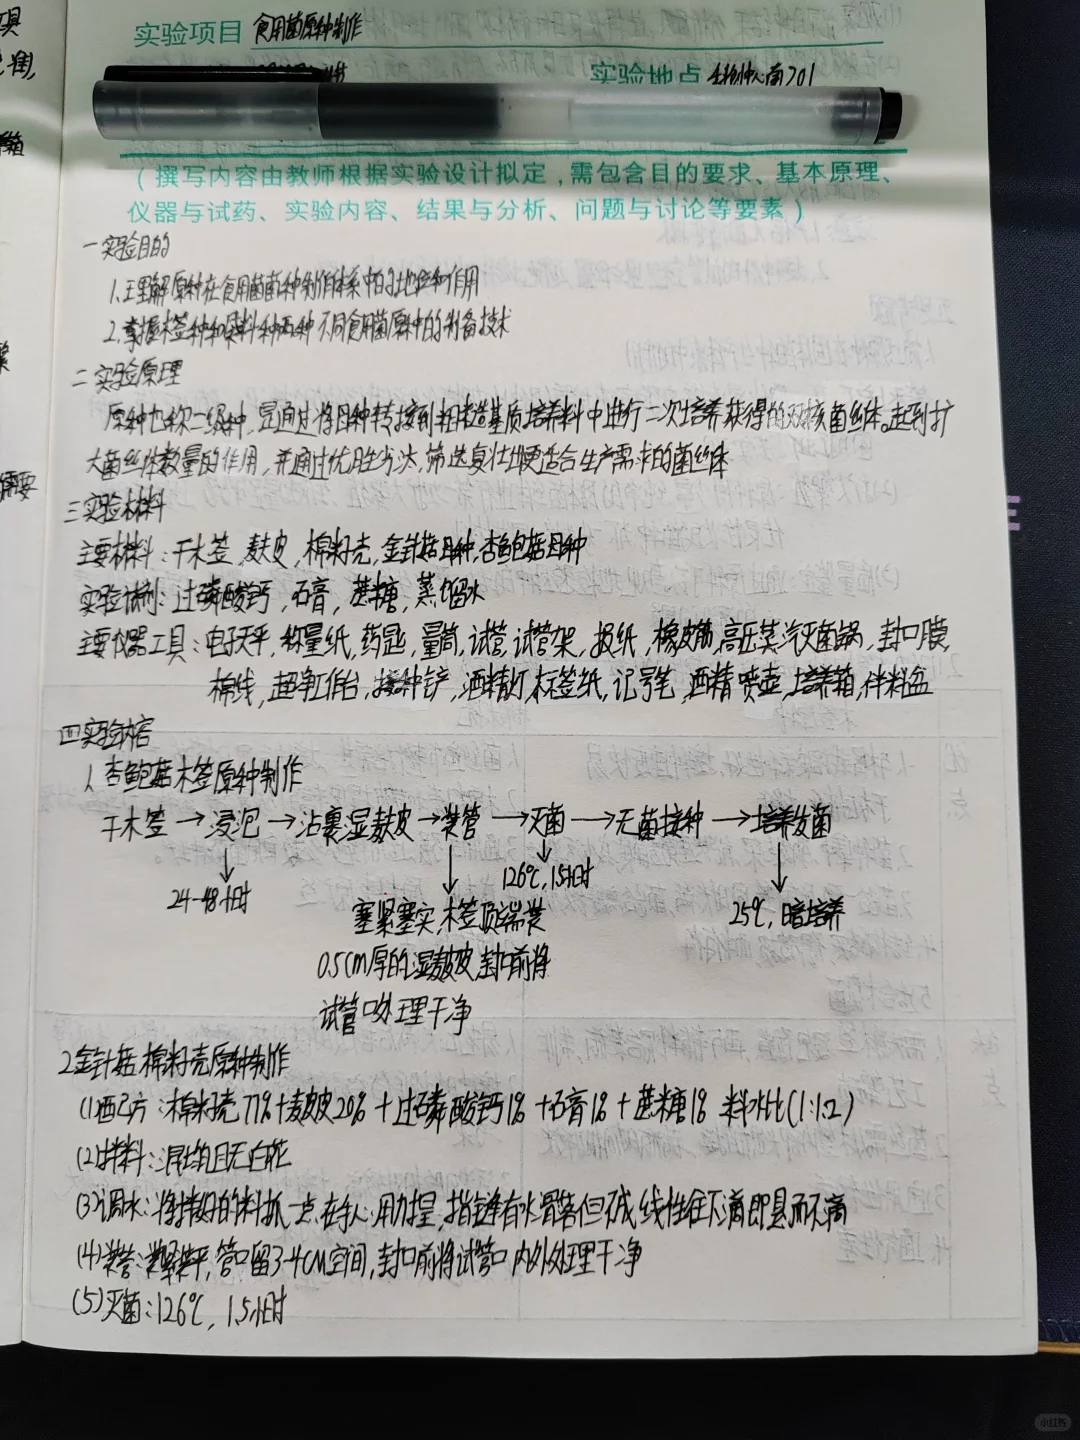 实验项目 食用菌原种制作
实验地点 生物中心南201
(撰写内容由教师根据实验设计拟定,需包含目的要求、基本原理、
仪器与试药、实验内容、结果与分析、问题与讨论等要素)
一 实验目的
1.理解原种在食用菌菌种制作体系中的地位和作用
2.掌握木签种和棉籽种两种不同食用菌原种的制备技术
二 实验原理
原种也称二级种,是通过将母种转接到粗制基质培养料中进行二次培养获得的双核菌丝体。起到扩
大菌丝体数量的作用,并通过优胜劣汰,筛选复壮出更适合生产需求的菌丝体
三 实验材料
主要材料:干木签,麸皮,棉籽壳,金针菇母种,杏鲍菇母种
实验试剂:过磷酸钙,石膏,蔗糖,蒸馏水
主要仪器工具:电子天平,称量纸,药匙,量筒,试管,试管架,报纸,橡皮筋,高压蒸汽灭菌锅,封口膜,
棉线,超净工作台,接种铲,酒精灯,标签纸,记号笔,酒精喷壶,培养箱,伴料盆
四 实验内容
1.杏鲍菇木签原种制作
干木签→浸泡→沾裹湿麸皮→装管→灭菌→无菌接种→培养发菌
24-48小时
126℃,1.5小时
塞紧塞实,木签顶端装
0.5cm厚的湿麸皮,封口前将
试管口处理干净
25℃,暗培养
2.金针菇棉籽壳原种制作
(1)配方:棉籽壳77%+麸皮20%+过磷酸钙1%+石膏1%+蔗糖1% 料水比(1:1.2)
(2)拌料:混均且无白花
(3)调水:将拌好的料抓一点在手心,用力握,指缝有水滑落但不成线性往下滴即悬而不滴
(4)装管:装紧装平,管口留3-4cm空间,封口前将试管口内外处理干净
(5)灭菌:126℃,1.5小时
小红书